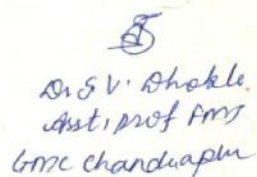 Dr S V. Dhokle.
Asst. prof FMT
GMC Chandrapur